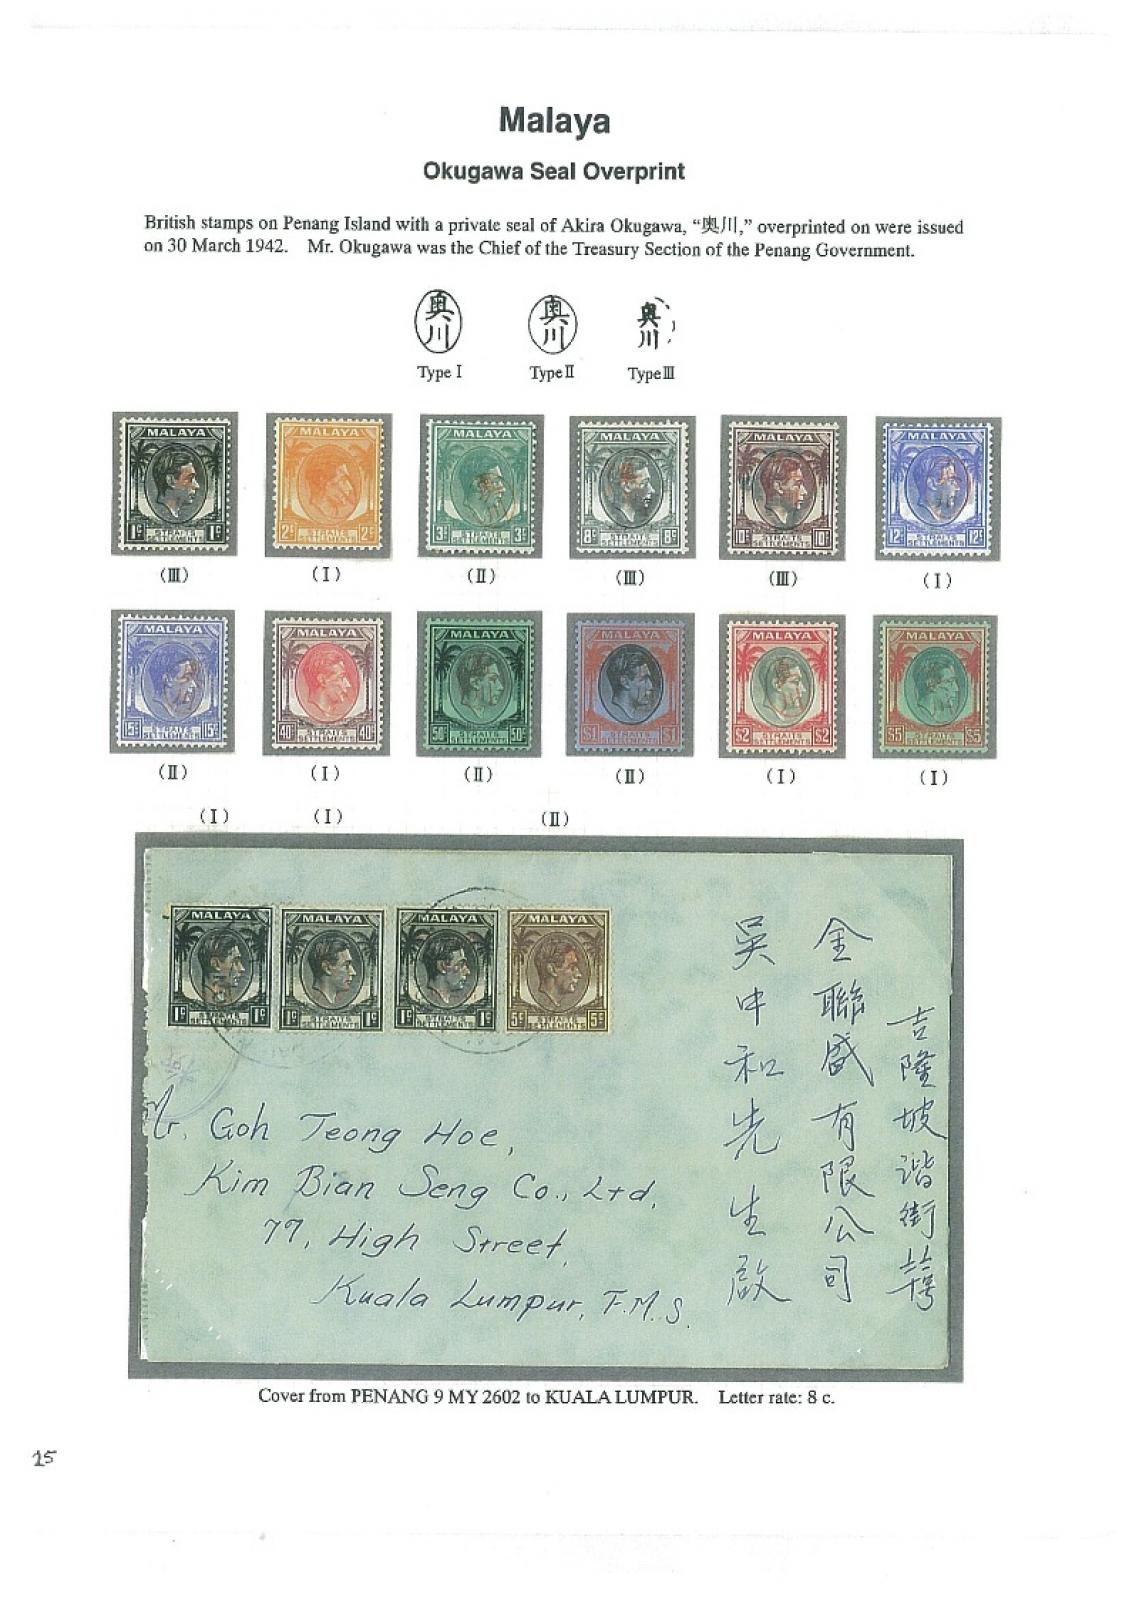 Malaya
Okugawa Seal Overprint
British stamps on Penang Island with a private seal of Akira Okugawa, “奥川,” overprinted on were issued
on 30 March 1942. Mr. Okugawa was the Chief of the Treasury Section of the Penang Government.
奥川 奥川 奥川
Type I Type II Type III
MALAYA MALAYA MALAYA MALAYA MALAYA MALAYA
1c 1c 2c 2c 3c 3c 8c 8c 10c 10c 12c 12c
STRAITS SETTLEMENTS STRAITS SETTLEMENTS STRAITS SETTLEMENTS STRAITS SETTLEMENTS STRAITS SETTLEMENTS STRAITS SETTLEMENTS
(III) (I) (II) (III) (III) (I)
MALAYA MALAYA MALAYA MALAYA MALAYA MALAYA
15c 15c 40c 40c 50c 50c $1 $1 $2 $2 $5 $5
STRAITS SETTLEMENTS STRAITS SETTLEMENTS STRAITS SETTLEMENTS STRAITS SETTLEMENTS STRAITS SETTLEMENTS STRAITS SETTLEMENTS
(II) (I) (II) (II) (I) (I)
(I) (I) (II)
MALAYA MALAYA MALAYA MALAYA
1c 1c 1c 1c 1c 1c 5c 5c
STRAITS SETTLEMENTS STRAITS SETTLEMENTS STRAITS SETTLEMENTS STRAITS SETTLEMENTS
吉隆坡谐街
金聯盛有限公司
吳中和先生啟
Mr. Goh Teong Hoe,
Kim Bian Seng Co., Ltd,
77, High Street,
Kuala Lumpur, F.M.S.
Cover from PENANG 9 MY 2602 to KUALA LUMPUR. Letter rate: 8 c.
25